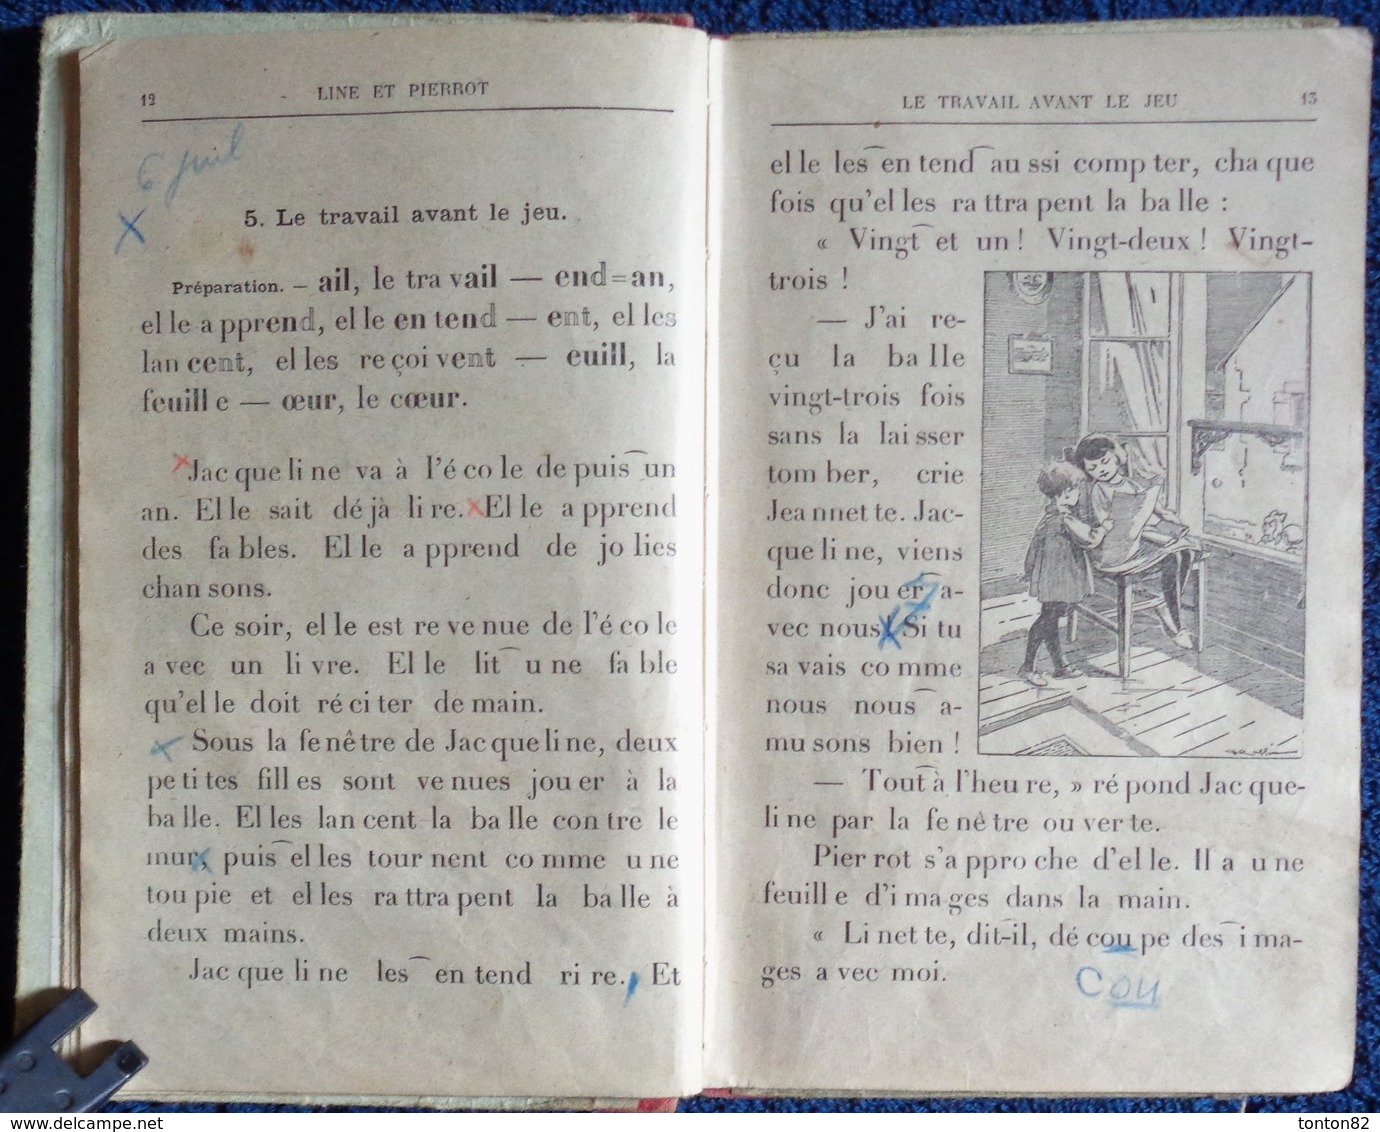 12 LINE ET PIERROT
6 juil
5. Le travail avant le jeu.
Préparation. — ail, le tra vail — end=an,
el le a pprend, el le en tend — ent, el les
lan cent, el les re çoi vent — euill, la
feuill e — œur, le cœur.
Jac que li ne va à l'é co le de puis un
an. El le sait dé jà li re. El le a pprend
des fa bles. El le a pprend de jo lies
chan sons.
Ce soir, el le est re ve nue de l'é co le
a vec un li vre. El le lit u ne fa ble
qu'el le doit ré ci ter de main.
Sous la fe nêtre de Jac que li ne, deux
pe ti tes fill es sont ve nues jou er à la
ba lle. El les lan cent la ba lle con tre le
mur, puis el les tour nent co mme u ne
tou pie et el les ra ttra pent la ba lle à
deux mains.
Jac que li ne les en tend ri re. Et
LE TRAVAIL AVANT LE JEU 13
el le les en tend au ssi comp ter, cha que
fois qu'el les ra ttra pent la ba lle :
« Vingt et un ! Vingt-deux ! Vingt-
trois !
— J'ai re-
çu la ba lle
vingt-trois fois
sans la lai sser
tom ber, crie
Jea nnet te. Jac-
que li ne, viens
donc jou er a-
vec nous! Si tu
sa vais co mme
nous nous a-
mu sons bien !
— Tout à l'heu re, » ré pond Jac que-
li ne par la fe nê tre ou ver te.
Pier rot s'a ppro che d'el le. Il a u ne
feuill e d'i ma ges dans la main.
« Li net te, dit-il, dé cou pe des i ma-
ges a vec moi.
Cou
tonton82